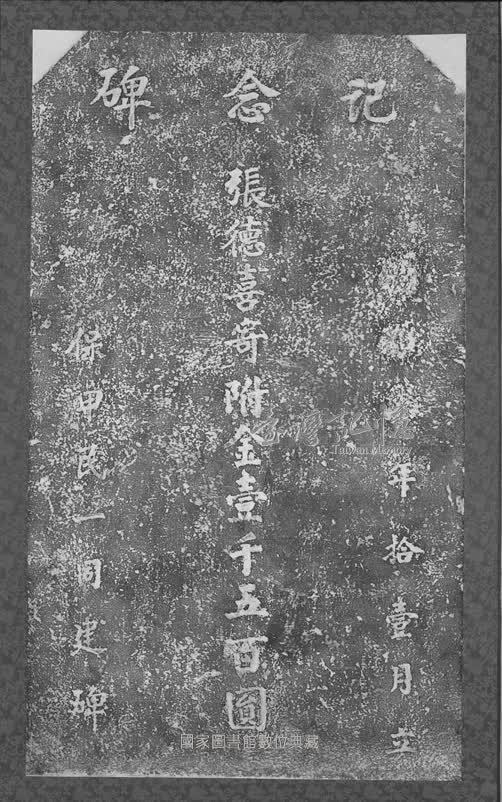 記念碑
年拾壹月立
張德喜寄附金壹千五百圓
保甲民一同建碑
Taiwan Memory
國家圖書館數位典藏